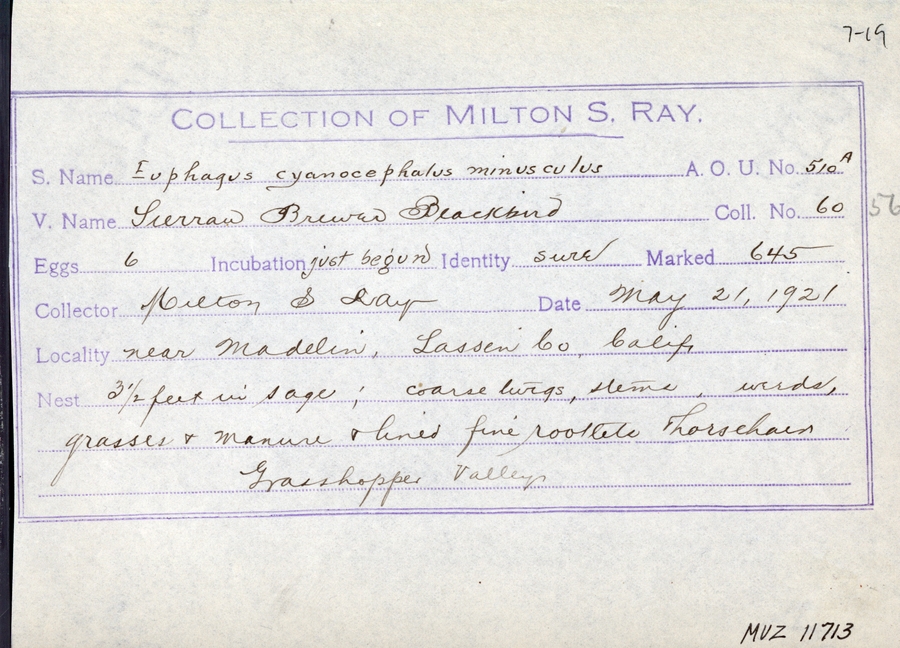 7-19
COLLECTION OF MILTON S. RAY.
S. Name Euphagus cyanocephalus minusculus A. O. U. No. 510A
V. Name Sierran Brewer Blackbird Coll. No. 60 56
Eggs 6 Incubation just begun Identity sure Marked 645
Collector Milton S Ray Date May 21, 1921
Locality near Madelin, Lassen Co, Calif,
Nest 3 1/2 feet in sage ; coarse twigs, stems, weeds,
grasses & manure & lined fine rootlets & horsehair
Grasshopper Valley
MVZ 11713